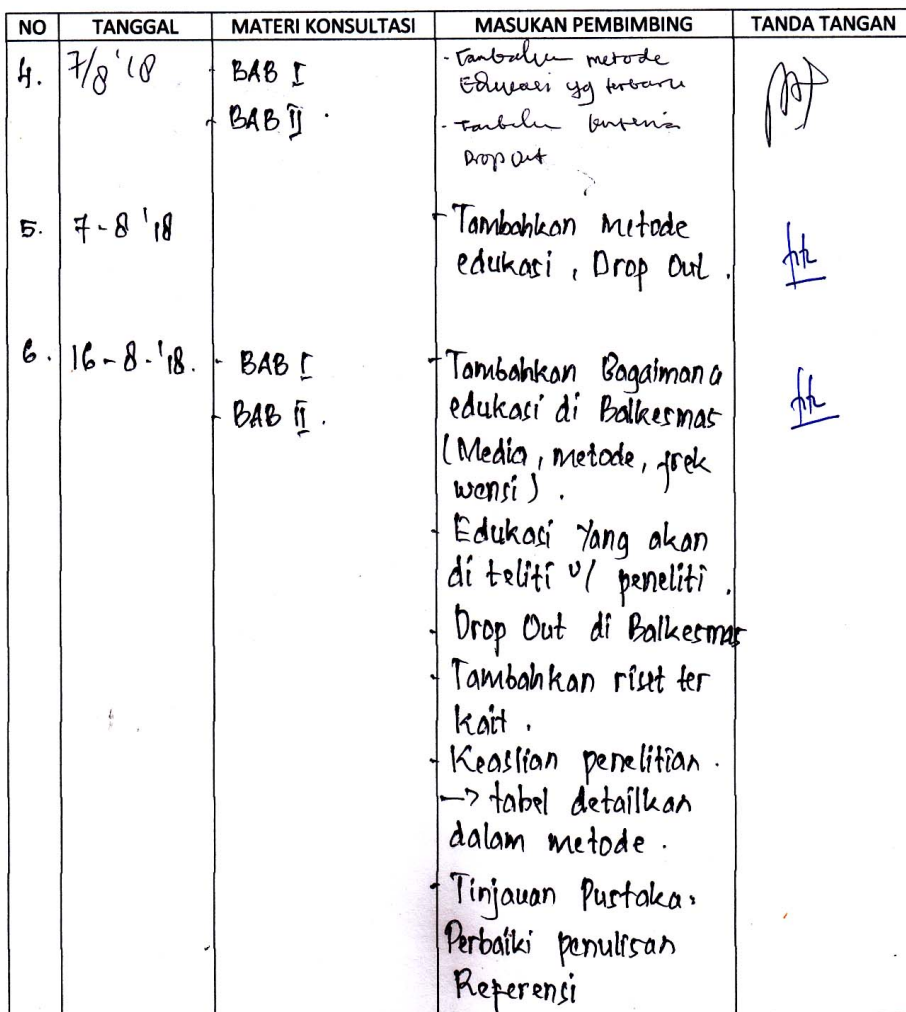 NO TANGGAL MATERI KONSULTASI MASUKAN PEMBIMBING TANDA TANGAN
4. 7/8 '18 - BAB I - Tambahkan metode
Edukasi yg terbaru
- BAB II . - Tambahkan kriteria
Drop Out
5. 7-8 '18 - Tambahkan Metode
edukasi, Drop Out.
6. 16-8-'18. - BAB I - Tambahkan Bagaimana
- BAB II . edukasi di Balkesmas
(Media, metode, frek
wensi).
- Edukasi Yang akan
di teliti u/ peneliti.
- Drop Out di Balkesmas
- Tambahkan riset ter
kait.
- Keaslian penelitian.
-> tabel detailkan
dalam metode.
- Tinjauan Pustaka:
Perbaiki penulisan
Referensi